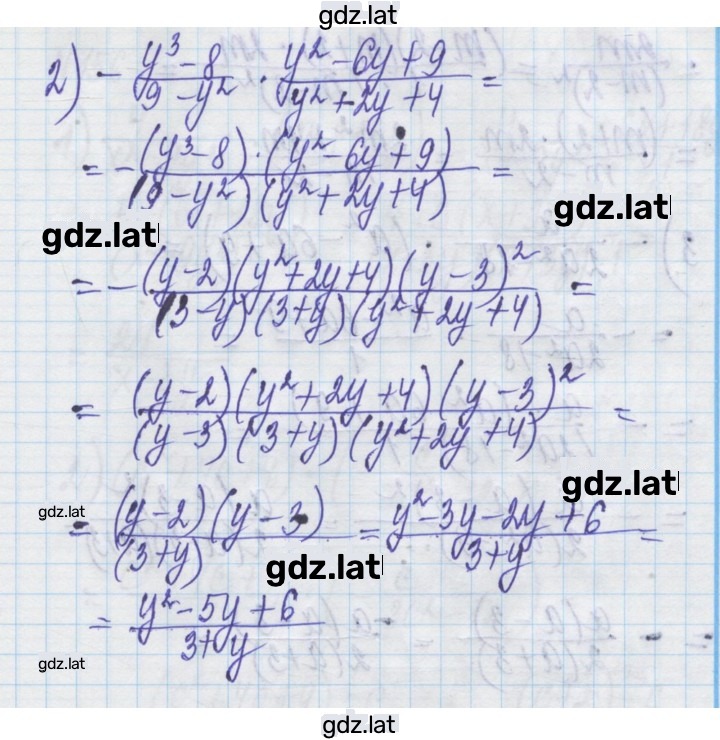 gdz.lat
2) - (y³ - 8)/(9 - y²) · (y² - 6y + 9)/(y² + 2y + 4) =
= - ((y³ - 8) · (y² - 6y + 9))/((9 - y²)(y² + 2y + 4)) =
gdz.lat
gdz.lat
= - ((y - 2)(y² + 2y + 4)(y - 3)²)/((3 - y)(3 + y)(y² + 2y + 4)) =
= ((y - 2)(y² + 2y + 4)(y - 3)²)/((y - 3)(3 + y)(y² + 2y + 4)) =
gdz.lat
gdz.lat
= ((y - 2)(y - 3))/((3 + y)) = (y² - 3y - 2y + 6)/(3 + y) =
gdz.lat
= (y² - 5y + 6)/(3 + y)
gdz.lat
gdz.lat